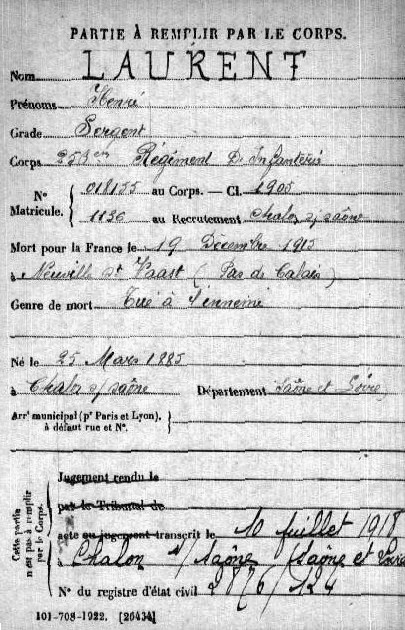 PARTIE À REMPLIR PAR LE CORPS.
Nom LAURENT
Prénoms Henri
Grade Sergent
Corps 256em Régiment D'Infanterie
N° Matricule. { 018155 au Corps. — Cl. 1905
1136 au Recrutement Chalon s/ Saône
Mort pour la France le 19 Décembre 1915
à Neuville St Vaast (Pas de Calais)
Genre de mort Tué à l'ennemi
Né le 25 Mars 1885
à Chalon s/ Saône Département Saône et Loire
Arr^t municipal (p^r Paris et Lyon), à défaut rue et N°. }
Cette partie n'est pas à remplir par le Corps.
Jugement rendu le
par le Tribunal de
acte ou jugement transcrit le 10 Juillet 1918
à Chalon s/ Saône Saône et Loire
N° du registre d'état civil 2876/124
101-708-1922. [26434]